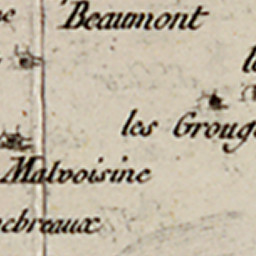 Beaumont
les Groug
Malvoisine
ebreaux